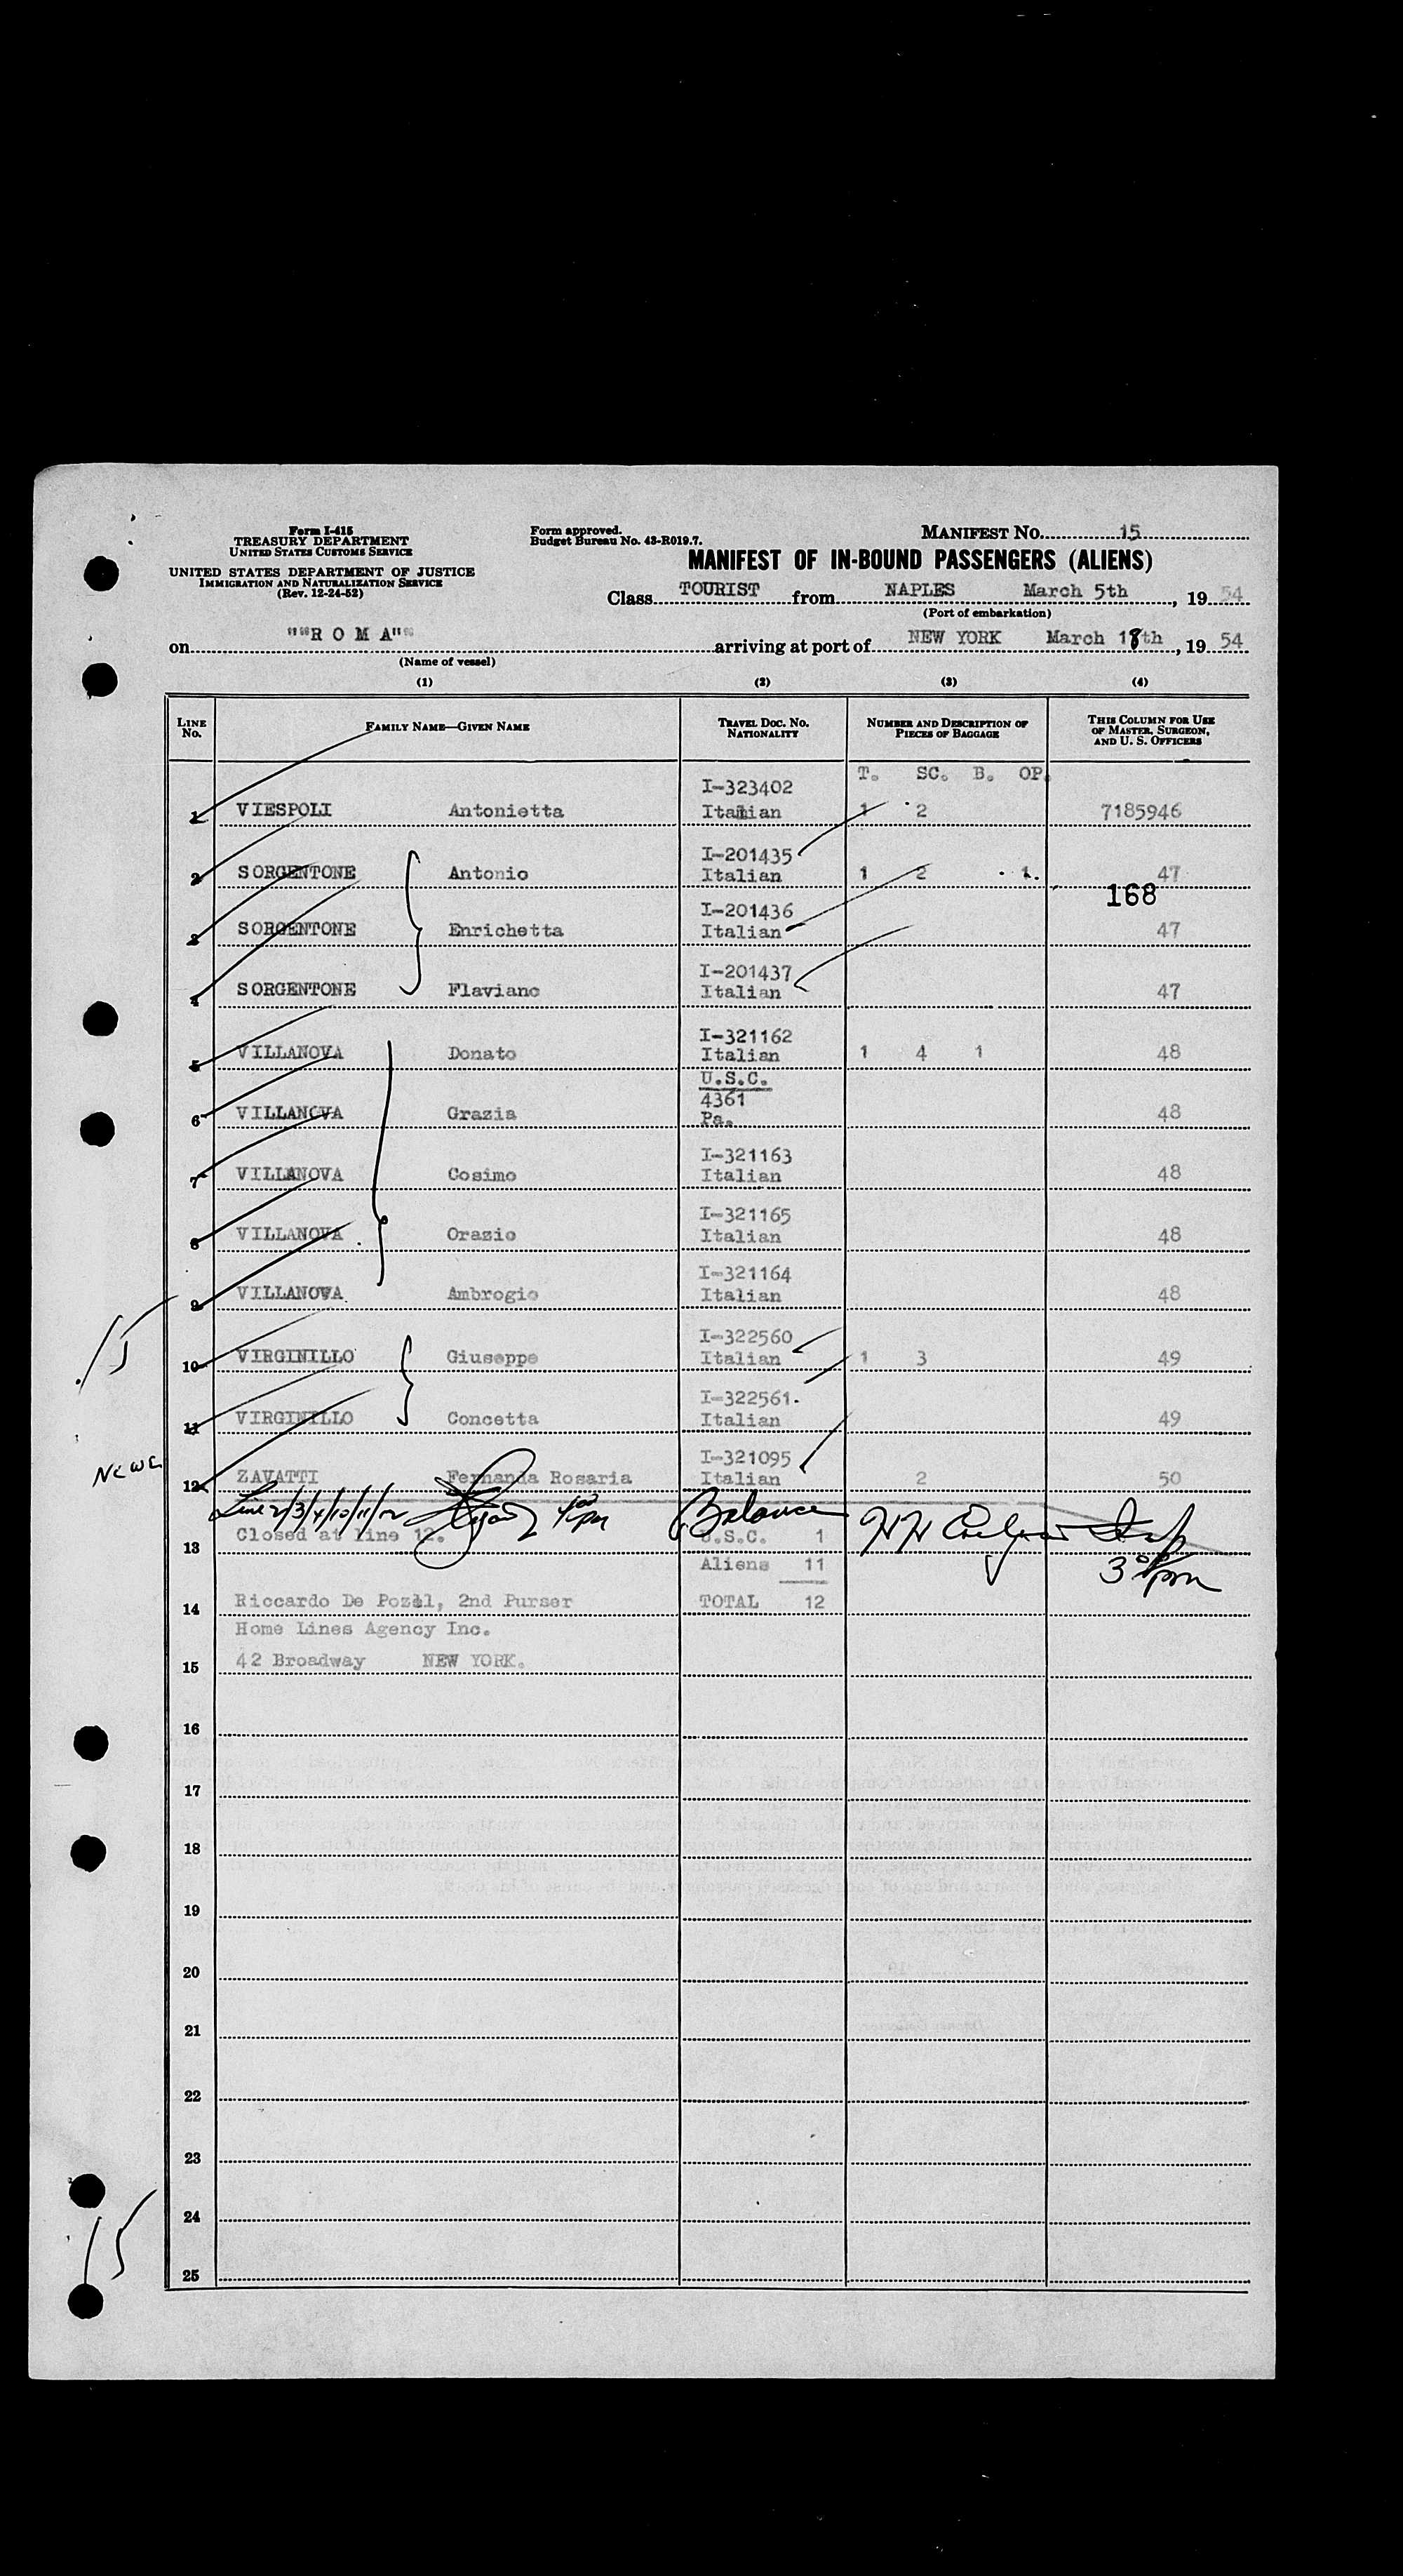 Form I-415
TREASURY DEPARTMENT
UNITED STATES CUSTOMS SERVICE
UNITED STATES DEPARTMENT OF JUSTICE
IMMIGRATION AND NATURALIZATION SERVICE
(Rev. 12-24-52)
Form approved.
Budget Bureau No. 43-R019.7.
MANIFEST NO. 15
MANIFEST OF IN-BOUND PASSENGERS (ALIENS)
Class TOURIST from NAPLES March 5th, 19 54
(Port of embarkation)
on ""R O M A"" arriving at port of NEW YORK March 18th, 19 54
(Name of vessel)
(1) (2) (3) (4)
LINE NO. FAMILY NAME—GIVEN NAME TRAVEL DOC. NO. NATIONALITY NUMBER AND DESCRIPTION OF PIECES OF BAGGAGE THIS COLUMN FOR USE OF MASTER, SURGEON, AND U. S. OFFICERS
T. SC. B. OP.
I-323402
1 VIESPOLI Antonietta Italian 1 2 7185946
I-201435
2 SORGENTONE Antonio Italian 1 2 1. 47
168
I-201436
3 SORGENTONE Enrichetta Italian 47
I-201437
4 SORGENTONE Flaviano Italian 47
I-321162
5 VILLANOVA Donato Italian 1 4 1 48
U.S.C.
4361
6 VILLANOVA Grazia Pa. 48
I-321163
7 VILLANOVA Cosimo Italian 48
I-321165
8 VILLANOVA Orazio Italian 48
I-321164
9 VILLANOVA Ambrogio Italian 48
15
I-322560
10 VIRGINILLO Giuseppe Italian 1 3 49
I-322561.
11 VIRGINILLO Concetta Italian 49
I-321095
12 ZAVATTI Fernanda Rosaria Italian 2 50
Line 2/3/4/10/11/12 4:00 pm Balance
13 Closed at line 12. U.S.C. 1
3:00 pm
Aliens 11
14 Riccardo De Pozál, 2nd Purser TOTAL 12
Home Lines Agency Inc.
15 42 Broadway NEW YORK.
16
17
18
19
20
21
22
23
24
25
15